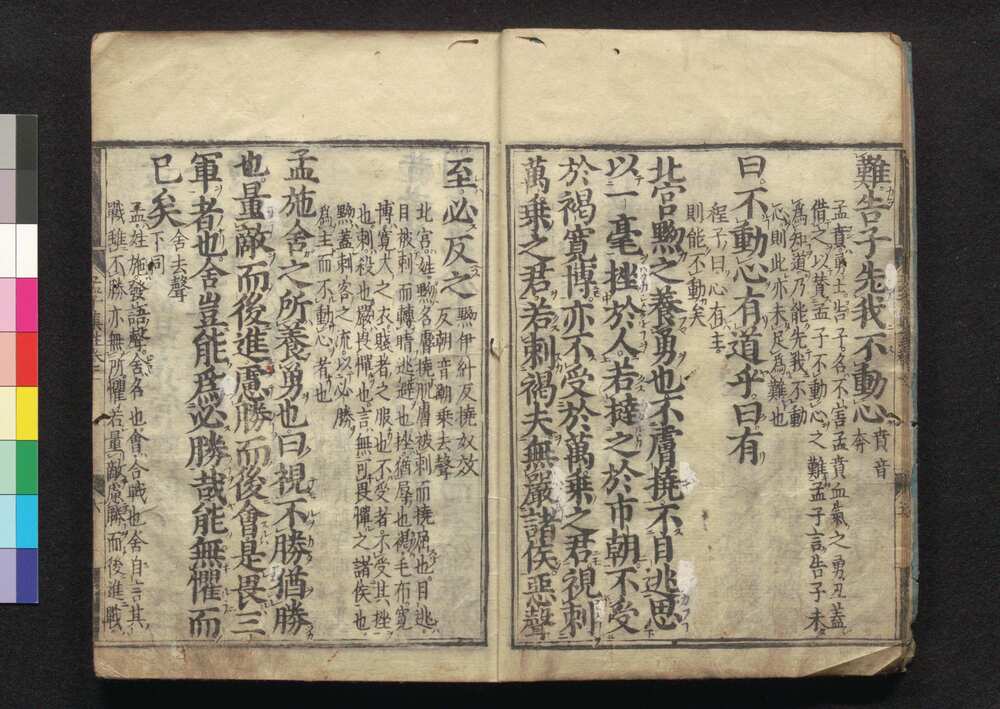 難告子先我不動心賁音奔
孟賁勇士告子名不害孟賁血氣之勇丑蓋
借之以賛孟子不動心之難孟子言告子未
爲知道乃能先我不動
心則此亦未足爲難也
曰不動心有道乎曰有
程子曰心有主
則能不動矣
北宮黝之養勇也不膚撓不目逃思
以一毫挫於人若撻之於市朝不受
於褐寛博亦不受於萬乗之君視刺
萬乗之君若刺褐夫無嚴諸侯惡聲
至必反之黝伊糾反撓奴效反朝音潮乗去聲
北宮姓黝名膚撓肌膚被刺而撓屈也目逃
目被刺而轉睛逃避也挫猶辱也褐毛布寛
博寛大之衣賎者之服也不受者不受其挫
也刺殺也嚴畏憚也言無可畏憚之諸侯也
黝蓋刺客之流以必勝
爲主而不動心者也
孟施舍之所養勇也曰視不勝猶勝
也量敵而後進慮勝而後會是畏三
軍者也舍豈能爲必勝哉能無懼而
已矣舍去聲下同
孟姓施發語聲舍名也會合戰也舍自言其
戰雖不勝亦無所懼若量敵慮勝而後進戰